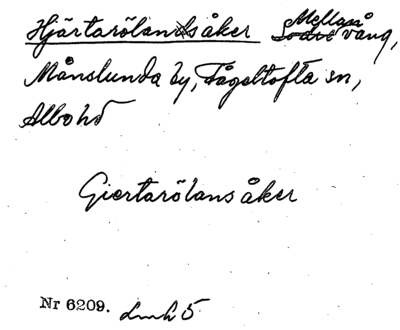 Hjärtarölandsåker Mellan vång,
Månslunda by, Fågeltofta sn,
Albo hd
Giertarölans åker
Nr 6209. Lmh 5